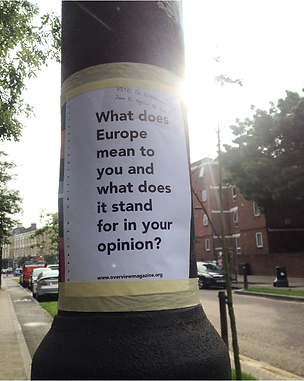 What does
Europe
mean to
you and
what does
it stand
for in your
opinion?
www.overviewmagazine.org